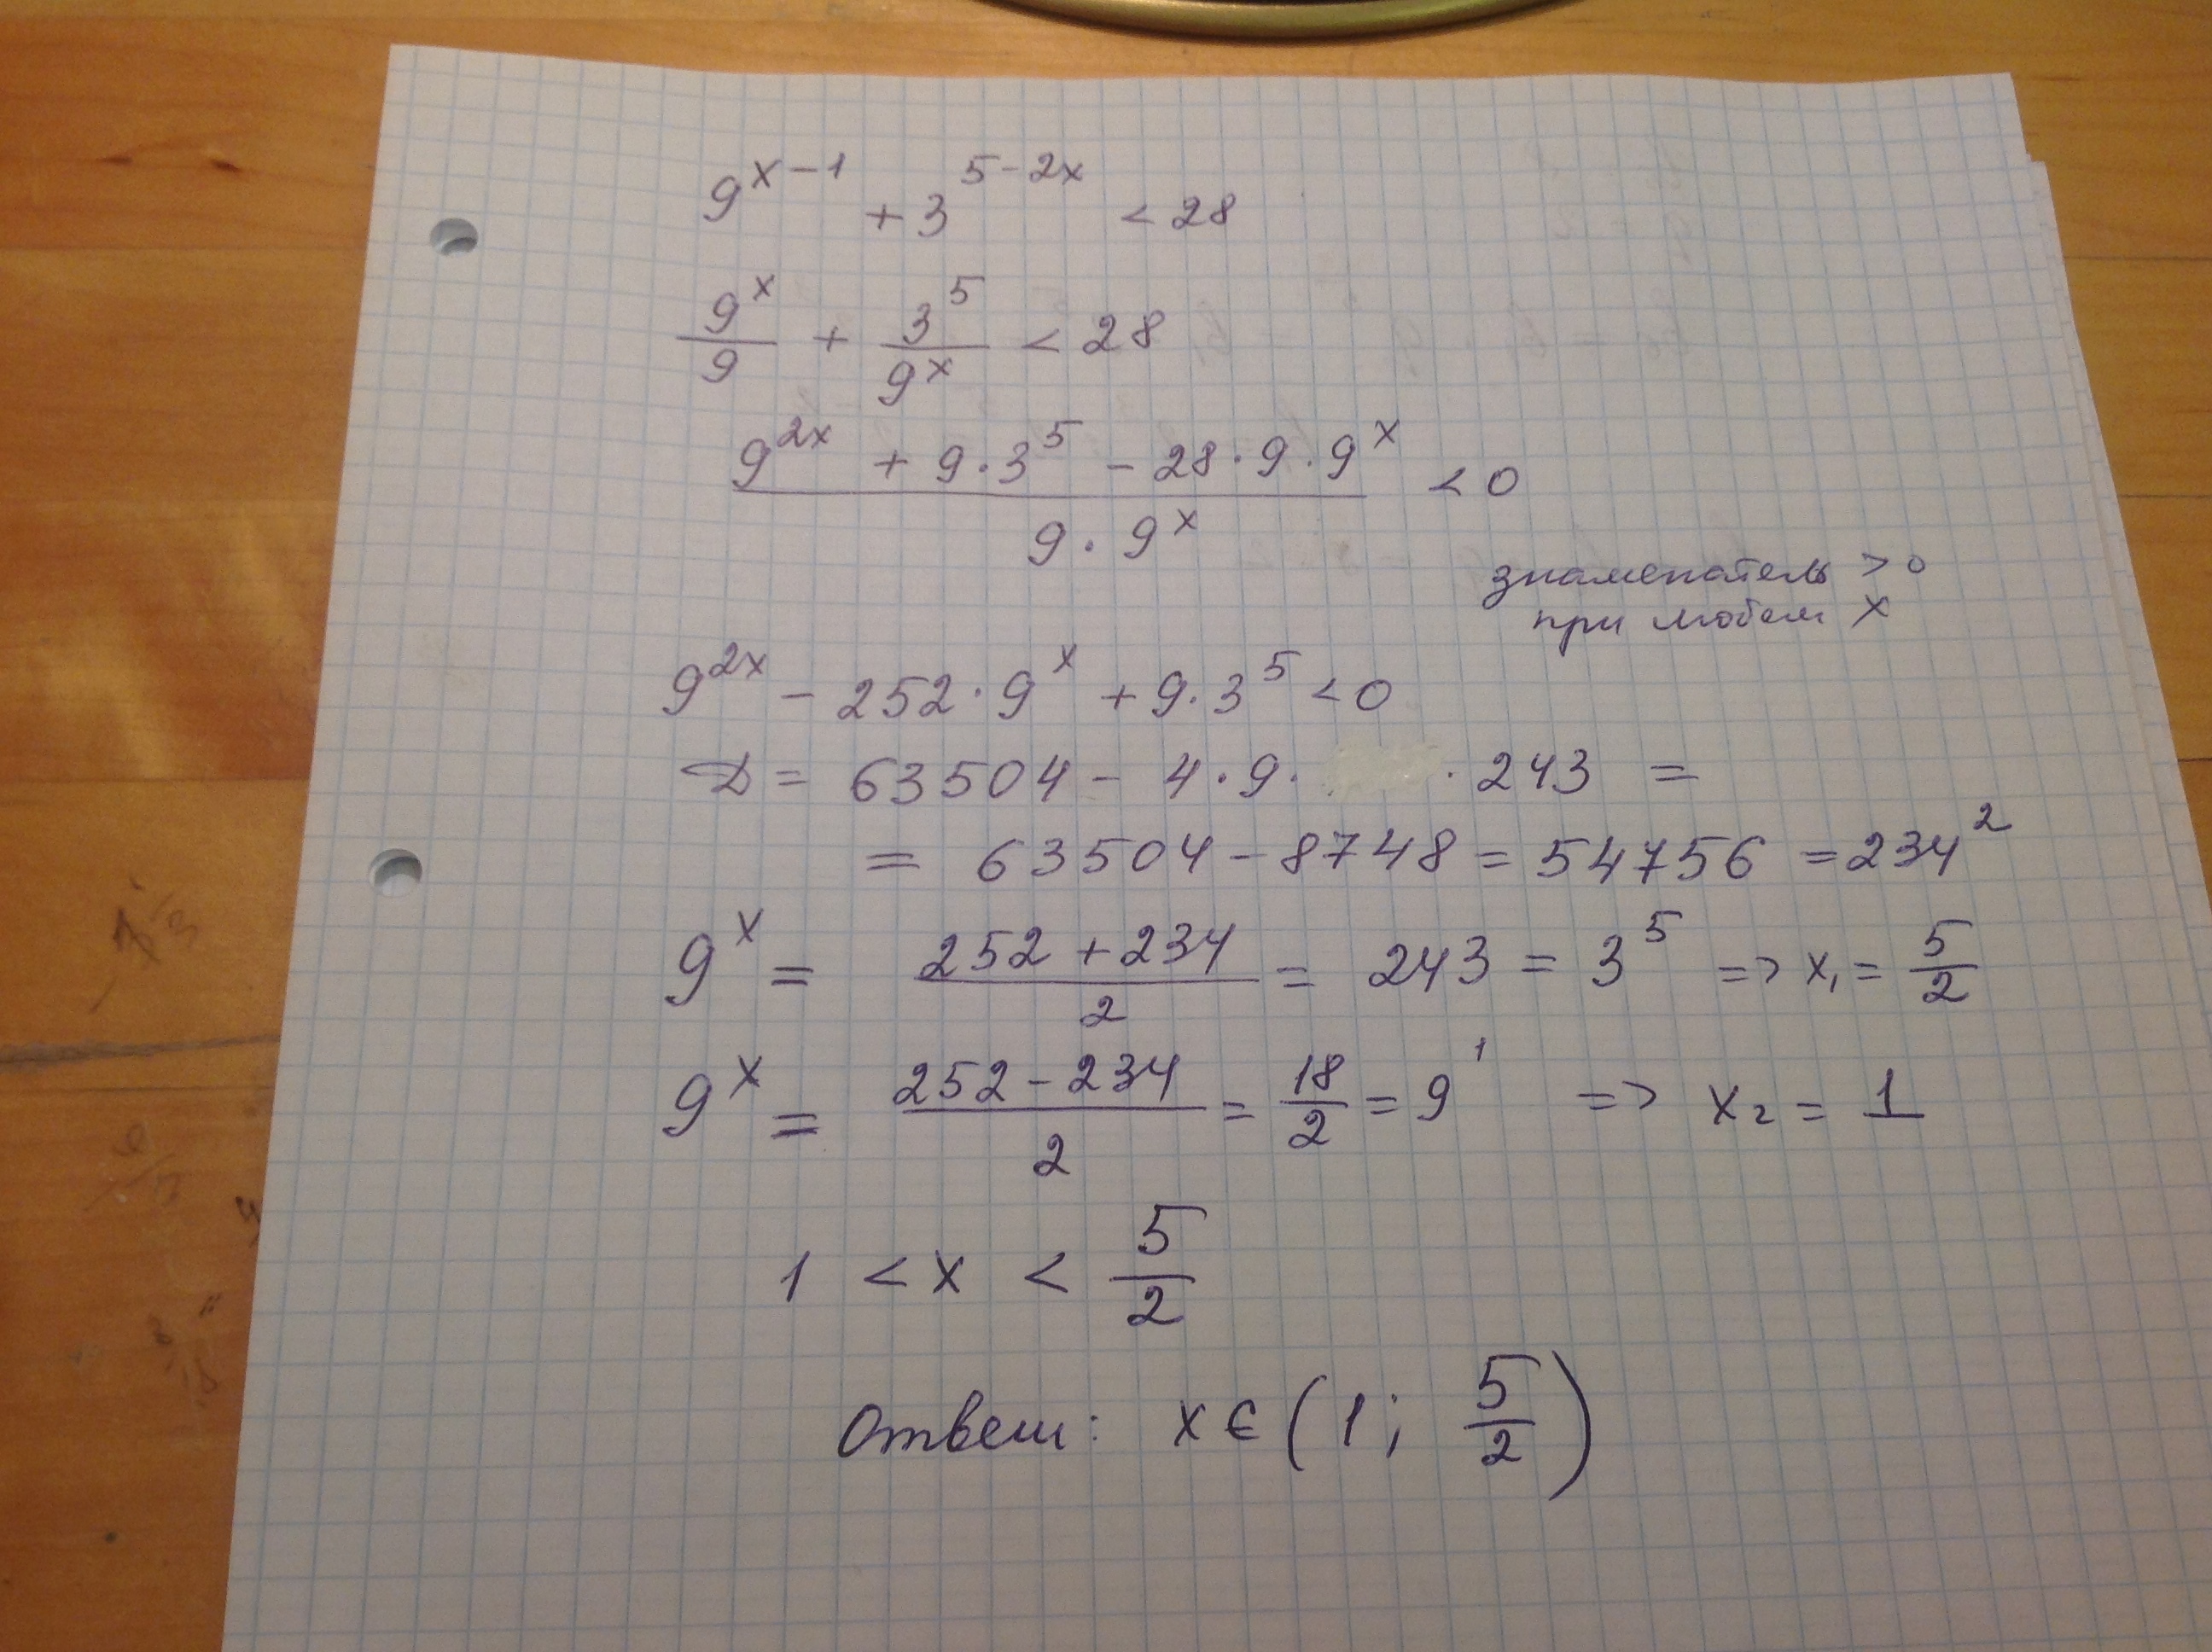 9^(x-1) + 3^(5-2x) < 28
9^x/9 + 3^5/9^x < 28
(9^(2x) + 9·3^5 - 28·9·9^x)/(9·9^x) < 0
знаменатель > 0
при любом x
9^(2x) - 252·9^x + 9·3^5 < 0
D = 63504 - 4·9· ·243 =
= 63504 - 8748 = 54756 = 234^2
9^x = (252 + 234)/2 = 243 = 3^5 => x₁ = 5/2
9^x = (252 - 234)/2 = 18/2 = 9^1 => x₂ = 1
1 < x < 5/2
Ответ: x ∈ (1; 5/2)